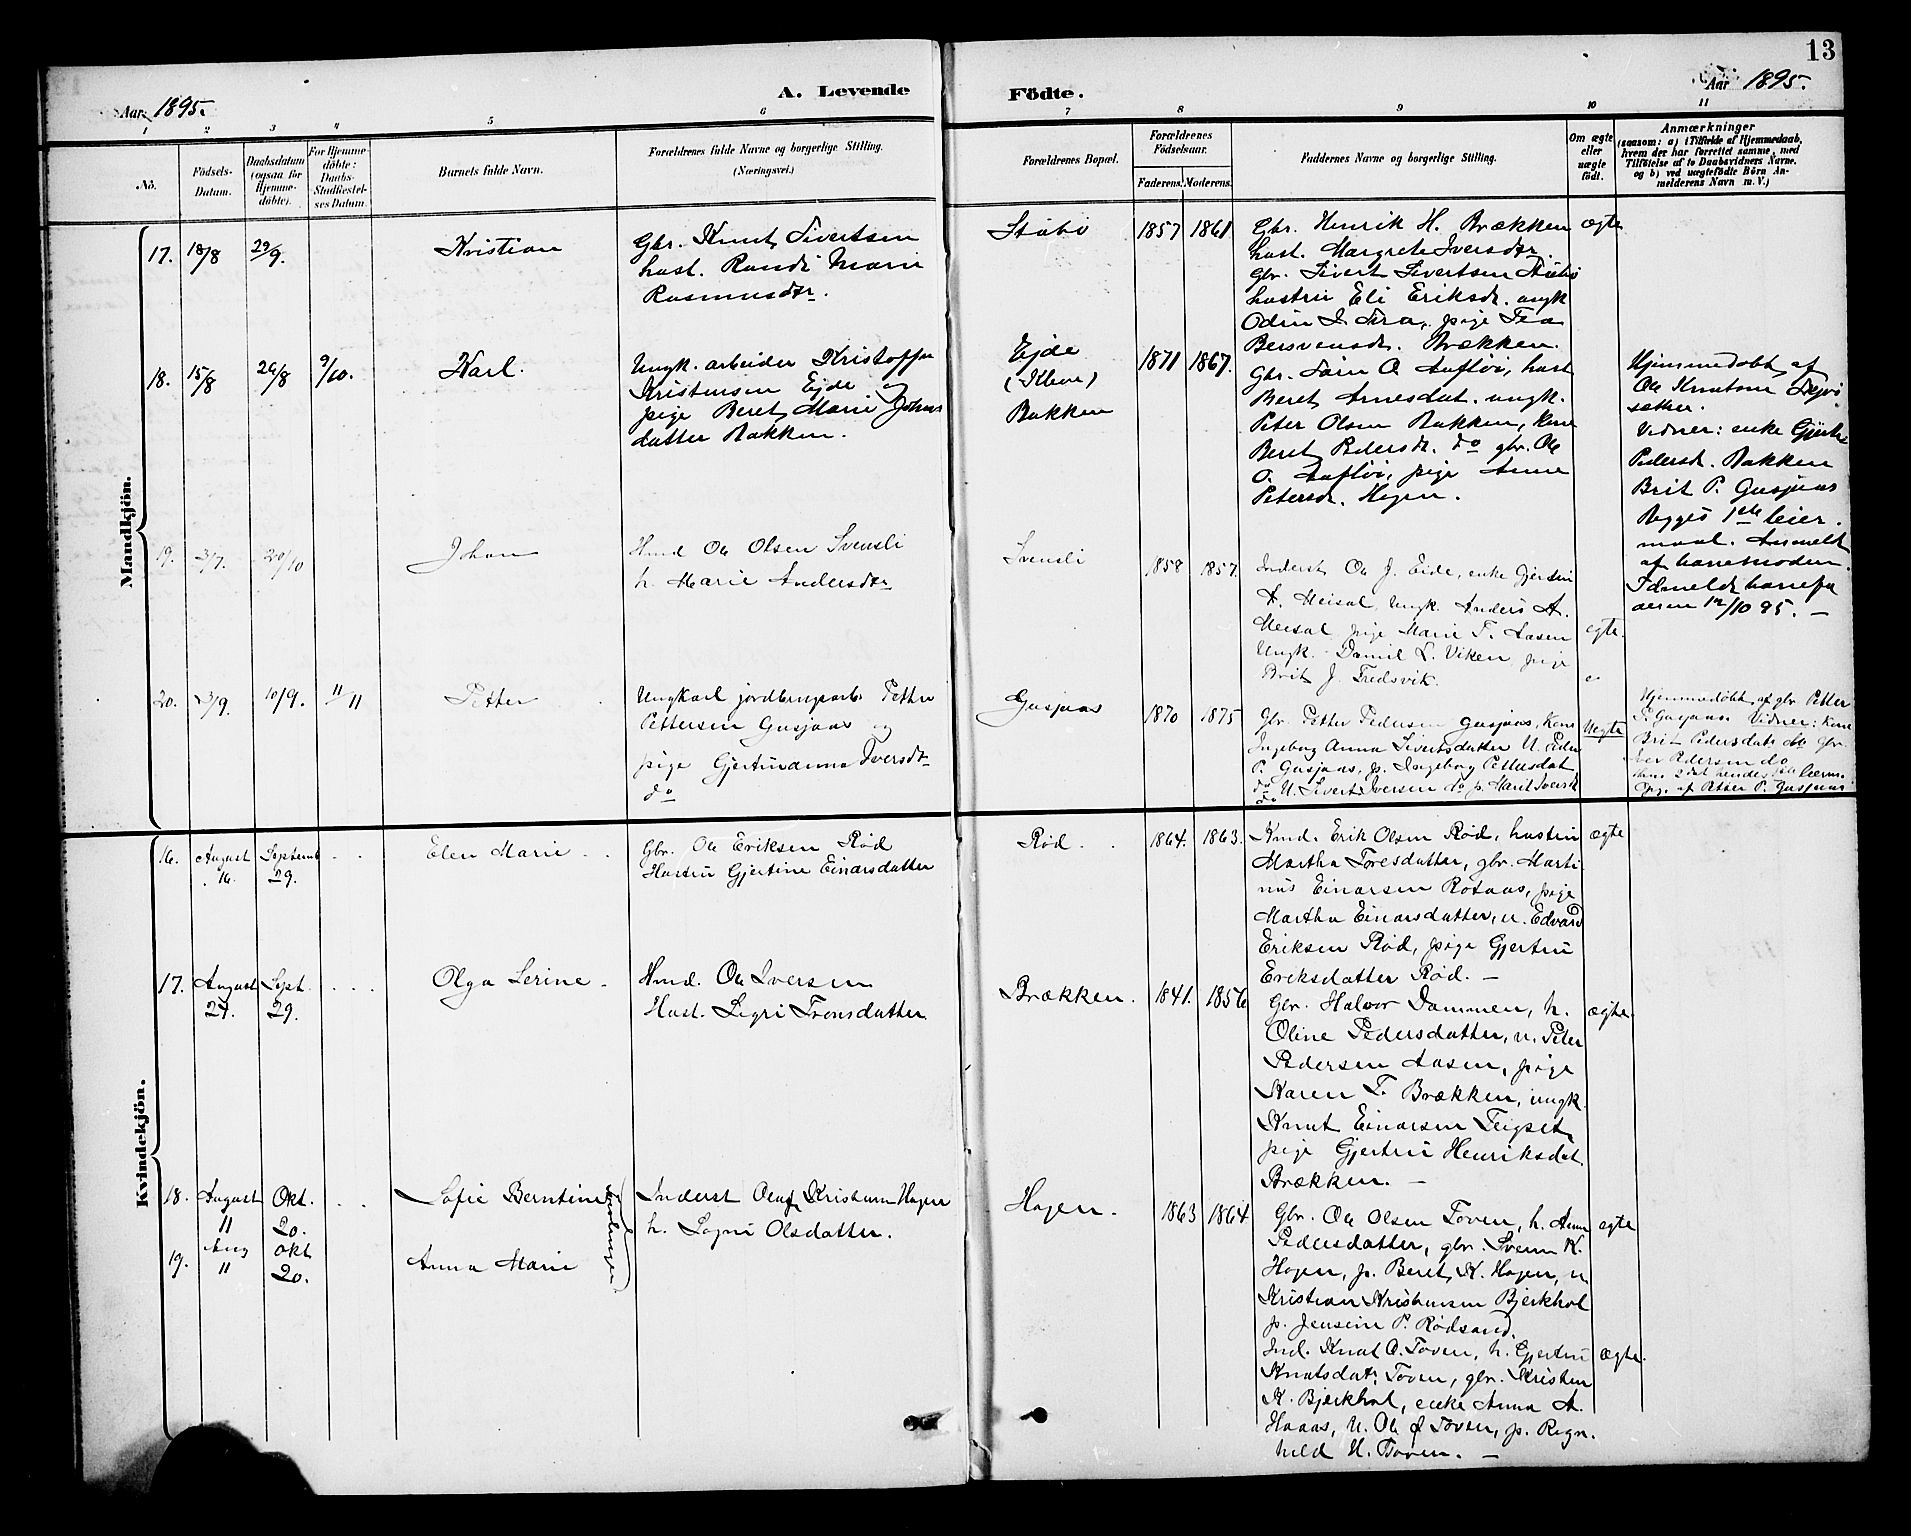 13
Aar 1895.
A. Levende
Födte.
Aar 1895.
1 2 3 4 5 6 7 8 9 10 11
No.
Födsels-
Datum.
Daabsdatum
(ogsaa for
Hjemme-
döbte).
For Hjemme-
döbte:
Daabs-
Stadfæstel-
ses Datum.
Barnets fulde Navn.
Forældrenes fulde Navne og borgerlige Stilling.
(Næringsvei.)
Forældrenes Bopæl.
Forældrenes
Födselsaar.
Faderens. Moderens.
Faddernes Navne og borgerlige Stilling.
Om ægte
eller
uægte
födt.
Anmærkninger
(saasom: a) i Tilfælde af Hjemmedaab,
hvem der har forrettet samme, med
Tilföielse af to Daabsvidners Navne,
og b) ved uægtefödte Börn An-
melderens Navn m. V.)
Mandkjön.
17. 18/8 29/9. Kristian
Gbr. Knut Sivertsen
hust. Randi Marie
Rasmusdtr.
Stubö 1857 1861
Gbr. Henrik H. Brækken
hust. Margrete Iversdtr.
Gbr. Sivert Sivertsen Stubö
hustru Eli Eriksdt. ungk
Odin I. Sira, pige Tea
Bersvensdt. Brækken.
ægte
18. 15/8 26/8 9/10. Karl.
Ungk. arbeider Kristoffer
Kristensen Ejde og
pige Beret Marie Johns
datter Bakken.
Ejde
(Kleve)
Bakken
1871 1867.
Gbr. Søin O. Aufløi, hust
Beret Arnesdat. ungk.
Peter Olsen Bakken, Kone
Beret Pedersdt. do gbr. Ole
O. Aufløi, pige Anne
Petersdt. Hogen.
Hjemmedøbt af
Ole Knutsen
sæther.
Vidner: enke Gjertr
Pedersdt. Bakken
Brit P. Gusjaas
Begges 1ste leier-
maal. Anmeldt
af barnemoderen.
Idmeldt barnefa
deren 12/10 95. —
19. 3/7. 20/10 Johan
Hmd Ole Olsen Svensli
h. Marie Andersdtr
Svensli 1858 1857.
Inderst Ole J. Eide, enke Gjertru
A. Meisal, Ungk. Anders A.
Meisal, pige Marie T. Aasen
Ungk. Daniel L. Viken, pige
Brit J. Fredsvik.
egte.
20. 3/9. 10/9. 11/11 Petter
Ungkarl jordbrugsarb. Petter
Pettersen Gusjaas og
pige Gjertruanna Iversdt
do
Gusjaas 1870 1875
Gbr. Petter Pedersen Gusjaas, Kone
Ingeborg Anna Sivertsdatter U. Peder
P. Gusjaas, p. Ingeborg Pettersdat
do U. Sivert Iversen do p. Marit Iversdt
do
Uegte
Hjemmedøbt af gbr Petter
P. Gusjaas Vidner: Kone
Brit Pedersdatr do Gbr
Iver Pedersen do
hans 2det hendes 1ste leierm.
Opg. af Petter P. Gusjaas
Kvindekjön.
16. August 16. Septemb 29. Elen Marie
Gbr. Ole Eriksen Rød
Hustru Gjertine Einarsdatter
Rød. 1864. 1863.
Kmd. Erik Olsen Rød, hustru
Martha Toresdatter, gbr. Marti
nus Einarsen Rotaas, pige
Martha Einarsdatter, u. Edvard
Eriksen Rød, pige Gjertru
Eriksdatter Rød. —
ægte
17. August 24. Sept. 29. Olga Serine.
Hmd. Ole Iversen
Hust. Sigri Tronsdatter
Brækken. 1841. 1856
Gbr. Halvor Dammen, h.
Oline Pedersdatter, u. Peter
Pedersen Aasen, pige
Karen T. Brækken, ungk.
Knut Einarsen Teigset,
pige Gjertru Henriksdat.
Brækken. —
ægte.
18. August 11 Okt. 20. Sofie Berntine
19. Aug 11 Okt 20. Anna Marie
Tvillinger
Inderst Oluf Kristian Hagen
h. Sigri Olsdatter.
Hagen. 1863 1864
Gbr. Ole Olsen Toven, h. Anne
Pedersdatter, gbr. Svenn K.
Hagen, p. Beret K. Hagen, u
Kristian Kristensen Bjerkhol
p. Jensine P. Rødsand.
egte
Ind. Knut O. Toven, h. Gjertru
Knutsdatr Toven, gbr. Kristen
K. Bjerkhol, enke Anna A.
Haaas, U. Ole J Toven, p. Ragn.
hild H. Toven. —
ægte.